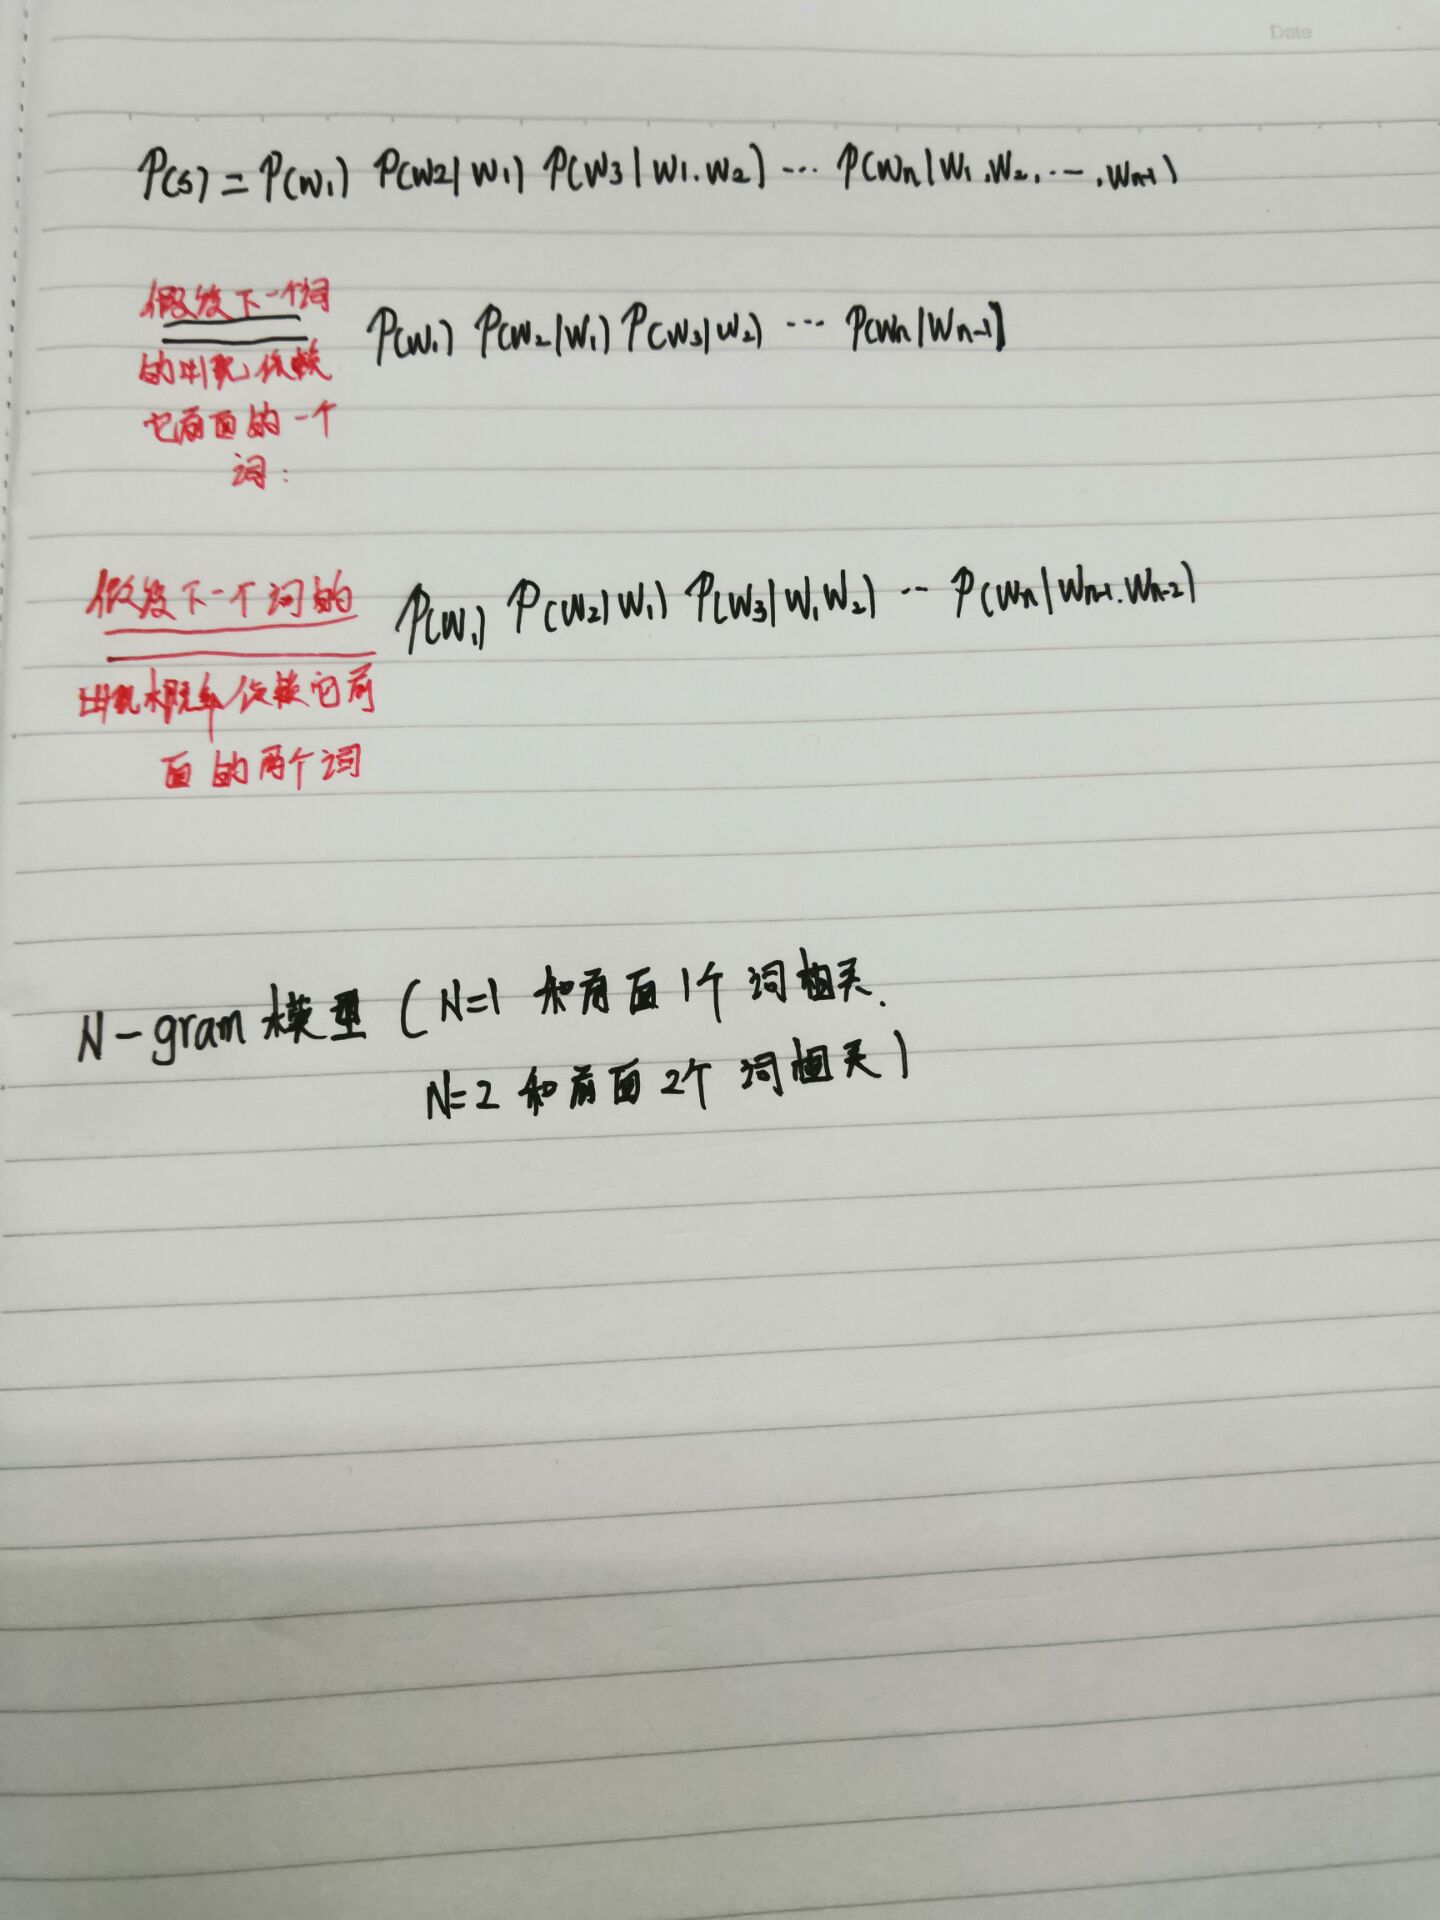 Date
P(s) = P(w₁) P(w2|w₁) P(w3|w1.w₂) ... P(wn|w₁.w₂. ... .wn-1)
假设下一个词
的出现依赖
它前面的一个
词:
P(w₁) P(w₂|w₁) P(w₃|w₂) ... P(wn|wn-1)
假设下一个词的
出现概率依赖它前
面的两个词
P(w₁) P(w₂|w₁) P(w₃|w₁w₂) ... P(wn|wn-1.wn-2)
N-gram模型(N=1 和前面1个词相关.
N=2 和前面2个词相关)